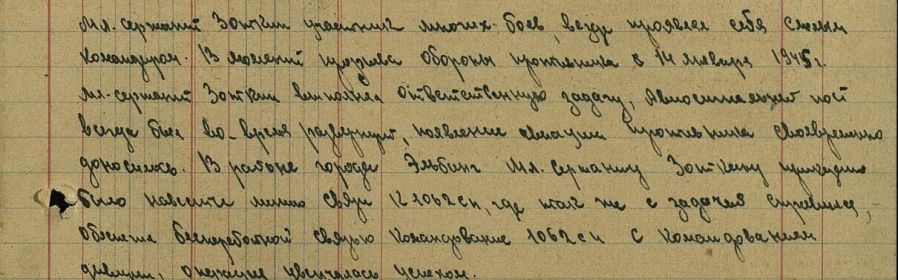 Мл. сержант Зонткин участник многих боев, везде проявлял себя смелым
командиром. В момент прорыва обороны противника с 14 января 1945 г.
мл. сержант Зонткин выполнял ответственную задачу, Авиосигнальный пост
всегда был во-время развернут, появление авиации противника своевременно
доносилось. В районе города Эльбинг Мл. Сержанту Зонткину приказано
было навести линию связи К 1062 сп, где так же с задачей справился,
обеспечив бесперебойной связью командование 1062 сп с командованием
дивизии, операция увенчалась успехом.